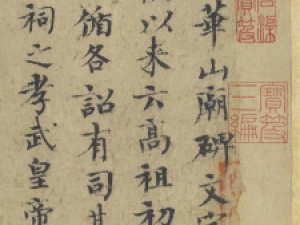 華山廟碑文字
以来六高祖初
循各詔有司其
祠之孝武皇帝
寶笈
三編